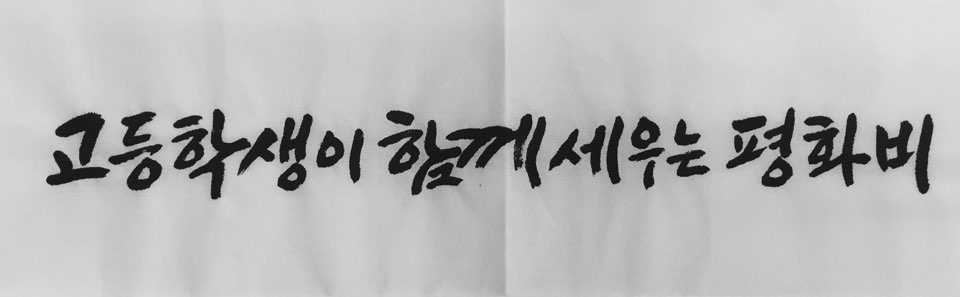 고등학생이 함께 세우는 평화비